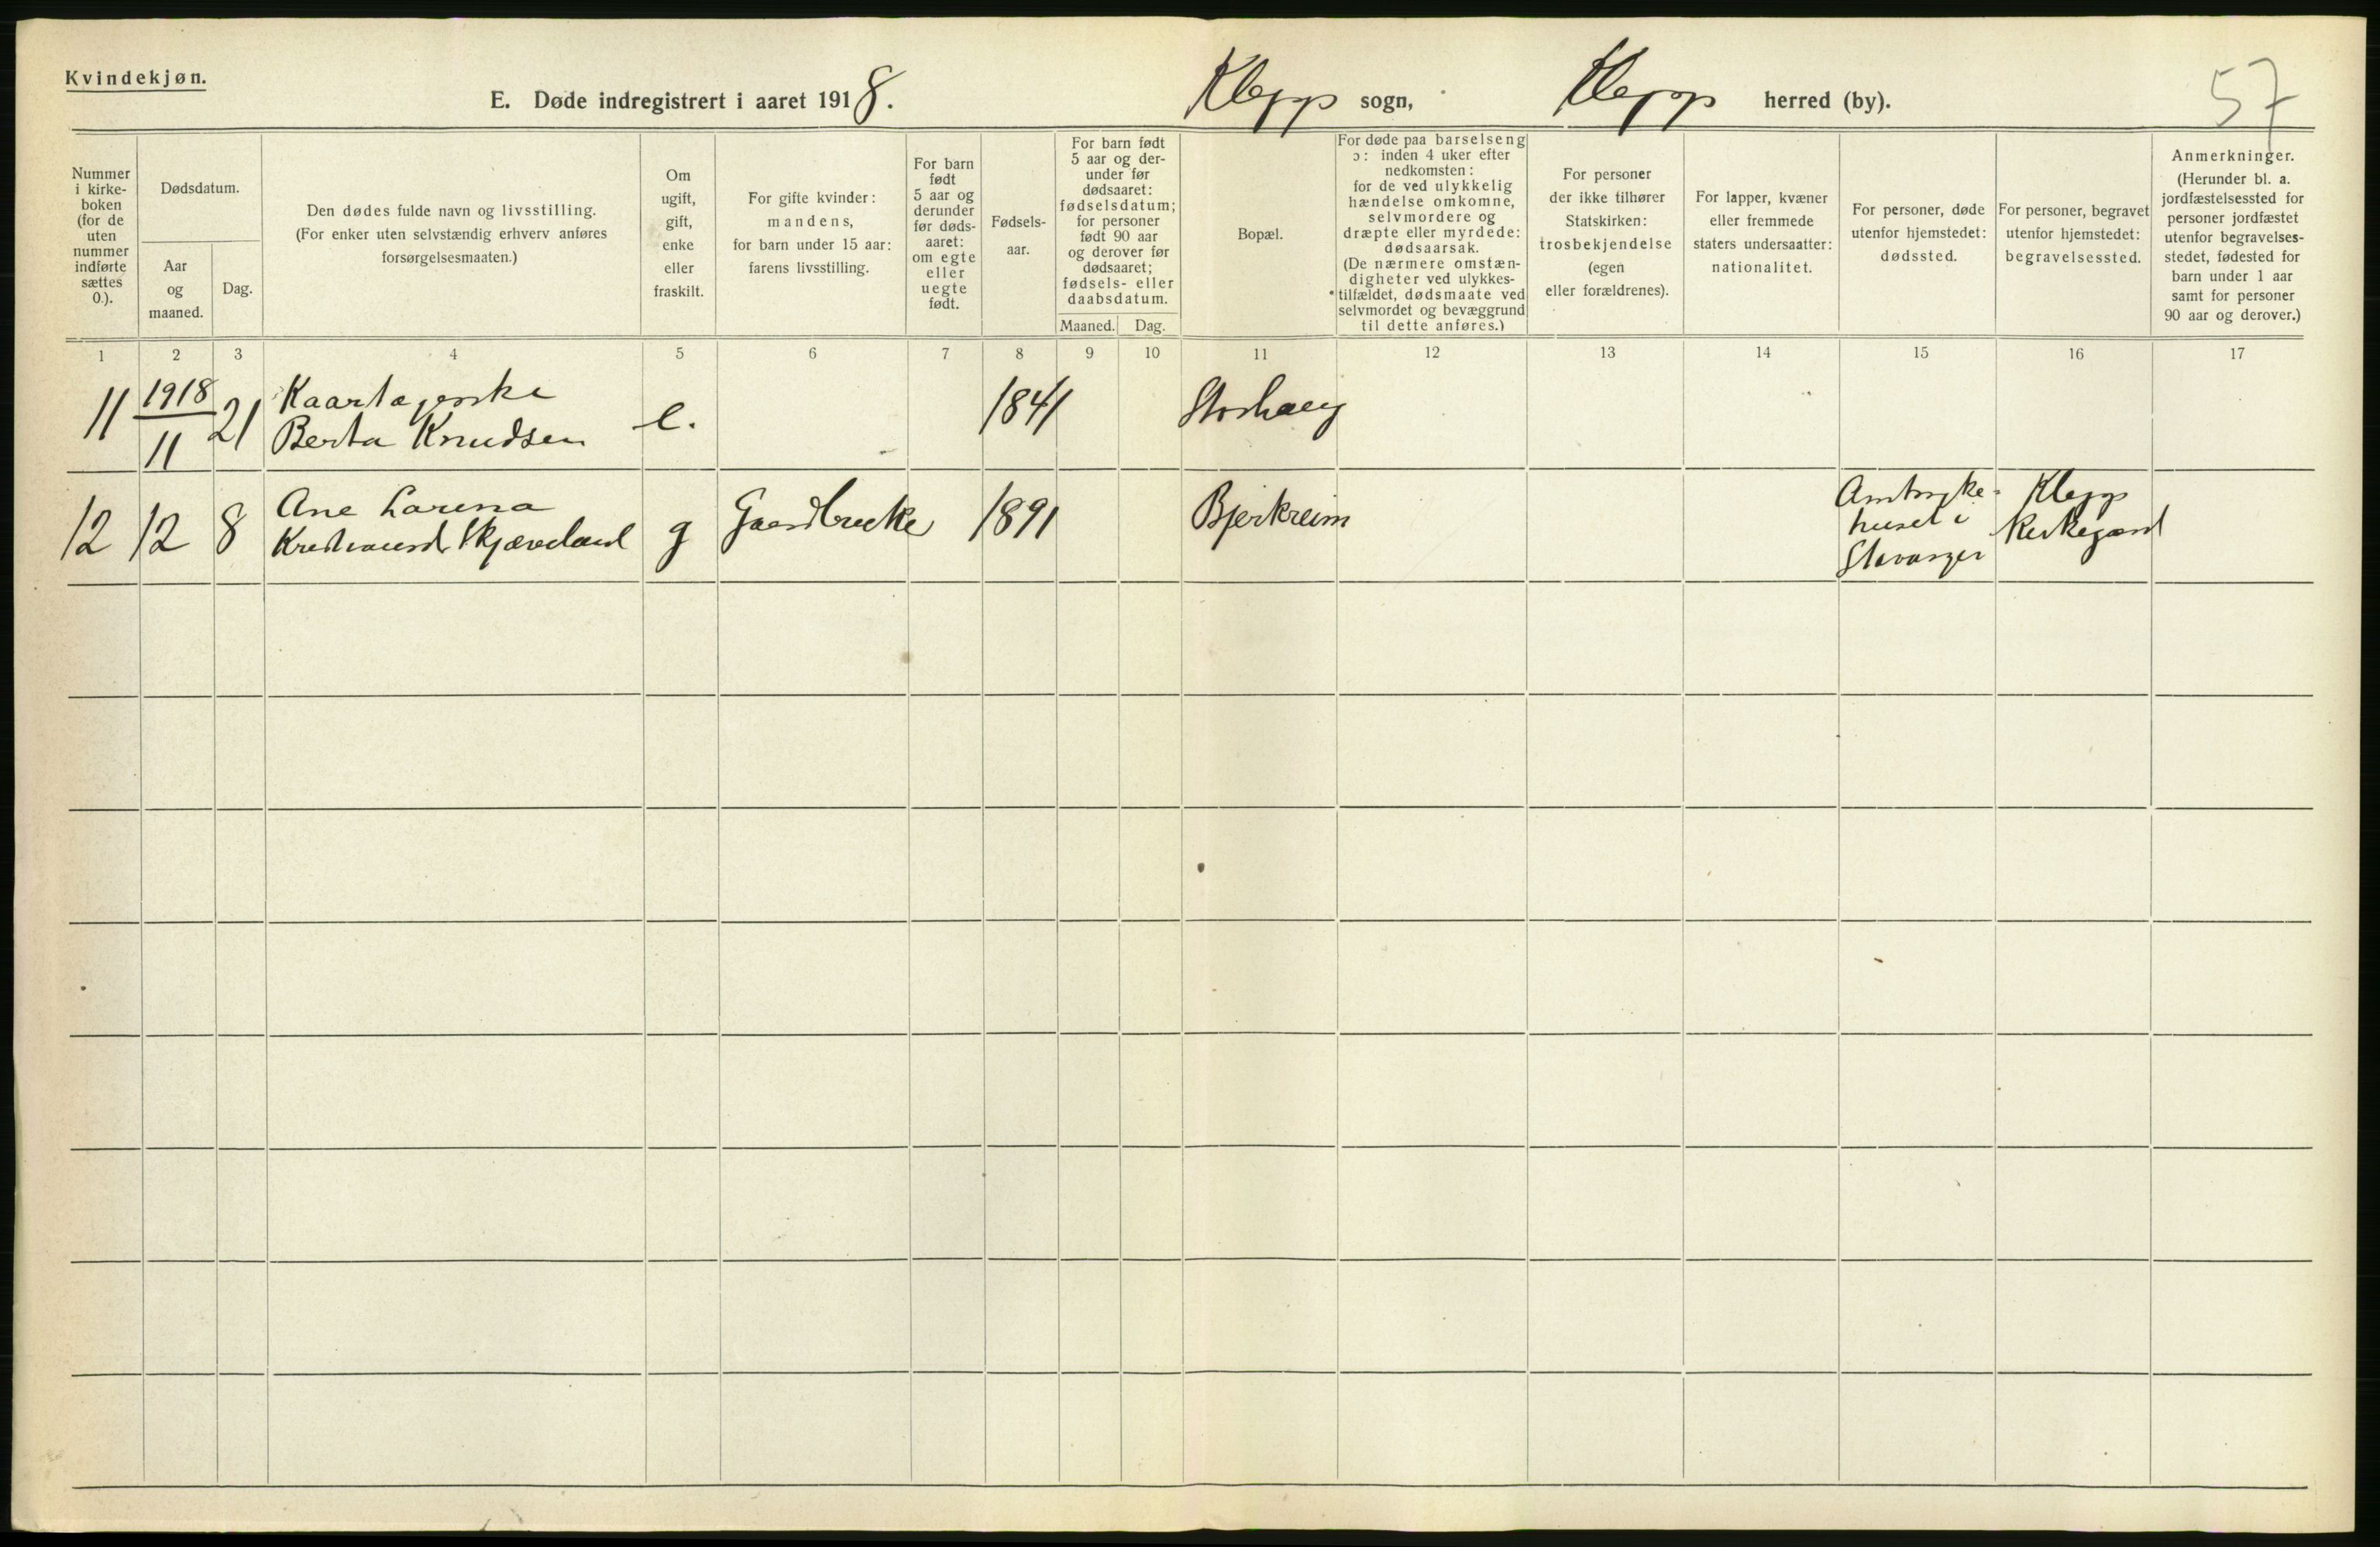 Kvindekjøn.
E. Døde indregistrert i aaret 1918.
Klepp sogn, Klepp herred (by).
57
Nummer
i kirke-
boken
(for de
uten
nummer
indførte
sættes
0.).
Dødsdatum.
Aar
og
maaned.
Dag.
Den dødes fulde navn og livsstilling.
(For enker uten selvstændig erhverv anføres
forsørgelsesmaaten.)
Om
ugift,
gift,
enke
eller
fraskilt.
For gifte kvinder:
mandens,
for barn under 15 aar:
farens livsstilling.
For barn
født
5 aar og
derunder
før døds-
aaret:
om egte
eller
uegte
født.
Fødsels-
aar.
For barn født
5 aar og der-
under før
dødsaaret:
fødselsdatum;
for personer
født 90 aar
og derover før
dødsaaret;
fødsels- eller
daabsdatum.
Maaned. Dag.
Bopæl.
For døde paa barselseng
ɔ: inden 4 uker efter
nedkomsten:
for de ved ulykkelig
hændelse omkomne,
selvmordere og
dræpte eller myrdede:
dødsaarsak.
(De nærmere omstæn-
digheter ved ulykkes-
tilfældet, dødsmaate ved
selvmordet og bevæggrund
til dette anføres.)
For personer
der ikke tilhører
Statskirken:
trosbekjendelse
(egen
eller forældrenes).
For lapper, kvæner
eller fremmede
staters undersaatter:
nationalitet.
For personer, døde
utenfor hjemstedet:
dødssted.
For personer, begravet
utenfor hjemstedet:
begravelsessted.
Anmerkninger.
(Herunder bl. a.
jordfæstelsessted for
personer jordfæstet
utenfor begravelses-
stedet, fødested for
barn under 1 aar
samt for personer
90 aar og derover.)
1 2 3 4 5 6 7 8 9 10 11 12 13 14 15 16 17
11 1918 11 21
Berta Knudsen
e. 1841 Storhaug
12 12 8
Ane Larina
Skjæveland
g Gaardbruker 1891 Bjerkreim
Amtsyke-
huset i
Stavanger
Klepp
Kirkegaard